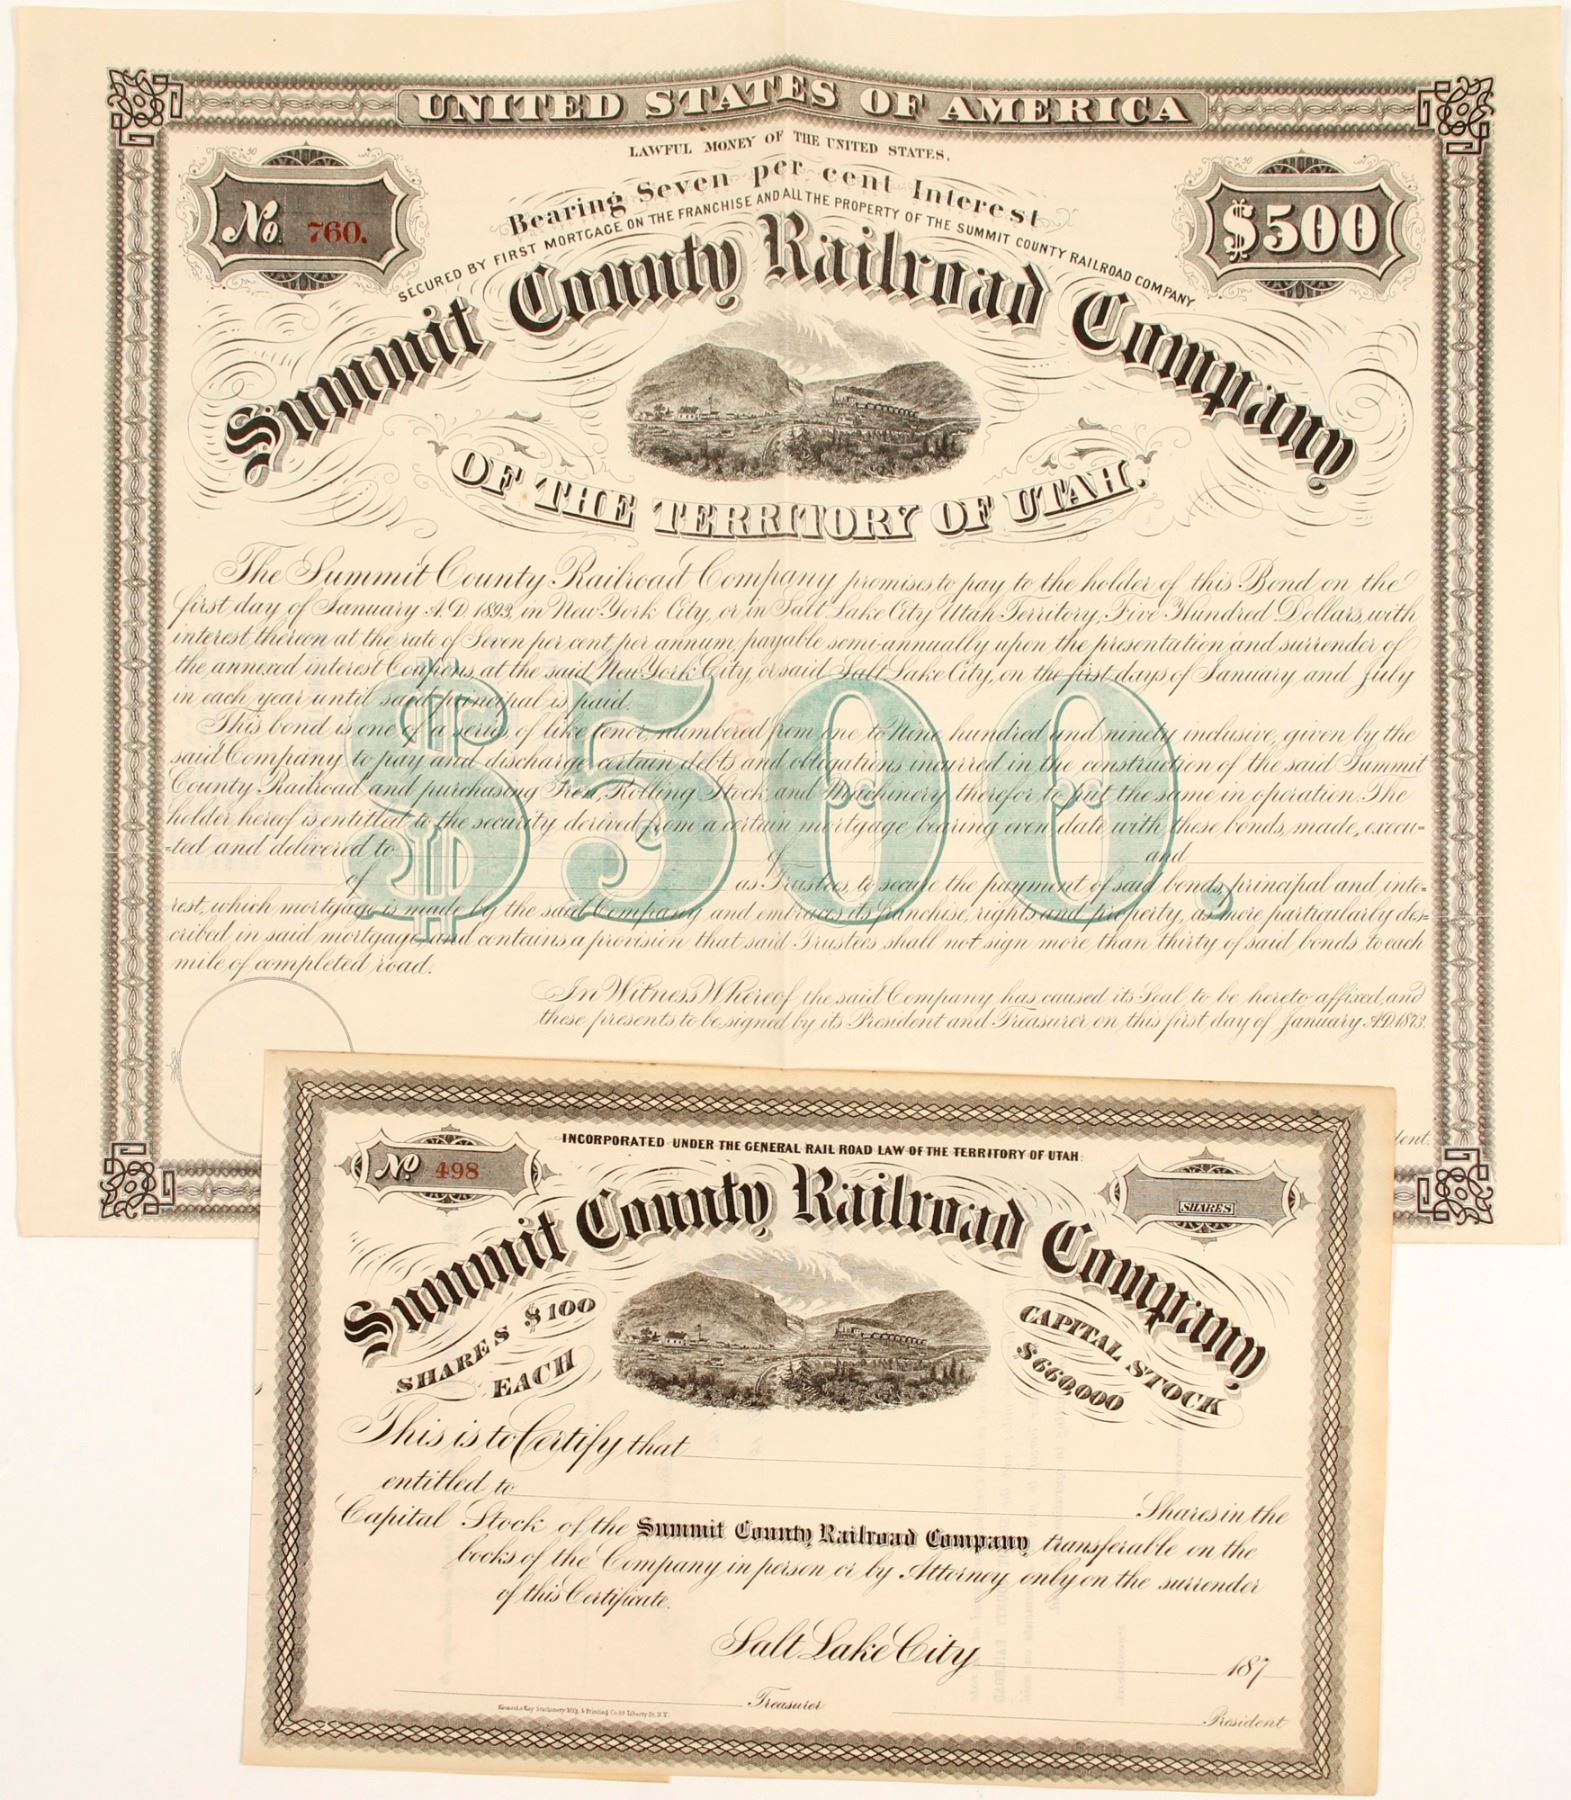 UNITED STATES OF AMERICA
LAWFUL MONEY OF THE UNITED STATES,
Bearing Seven per cent Interest
SECURED BY FIRST MORTGAGE ON THE FRANCHISE AND ALL THE PROPERTY OF THE SUMMIT COUNTY RAILROAD COMPANY
No. 760.
$500
Summit County Railroad Company
OF THE TERRITORY OF UTAH.
The Summit County Railroad Company promises to pay to the holder of this Bond on the
first day of January A.D. 1893, in New York City, or in Salt Lake City Utah Territory, Five Hundred Dollars, with
interest thereon at the rate of Seven per cent, per annum payable semi-annually upon the presentation and surrender of
the annexed interest Coupons, at the said New York City, or said Salt Lake City, on the first days of January and July
in each year until said principal is paid.
This bond is one of a series, of like tenor, numbered from one to Nine hundred and ninety inclusive, given by the
said Company to pay and discharge certain debts and obligations incurred in the construction of the said Summit
County Railroad and purchasing Iron, Rolling Stock, and Machinery therefor to put the same in operation. The
holder hereof is entitled to the security derived from a certain mortgage bearing even date with these bonds, made, execu=
=ted and delivered to of and
of as Trustees, to secure the payment of said bonds, principal and inte=
rest, which mortgage is made by the said Company and embraces its franchise, rights and property, as more particularly des=
cribed in said mortgage, and contains a provision that said Trustees shall not sign more than thirty of said bonds to each
mile of completed road.
$500.
In Witness Whereof, the said Company has caused its Seal to be hereto affixed, and
these presents to be signed by its President and Treasurer on this first day of January A.D. 1873.
dent.
No. 498
INCORPORATED UNDER THE GENERAL RAIL ROAD LAW OF THE TERRITORY OF UTAH.
SHARES
Summit County Railroad Company
SHARES $100
EACH
CAPITAL STOCK
$660,000
This is to Certify that
entitled to
Shares in the
Capital Stock of the Summit County Railroad Company, transferable on the
books of the Company in person or by Attorney only on the surrender
of this Certificate.
Salt Lake City 187
Treasurer
President
Stationery M'f'g. & Printing Co. Liberty St. N.Y.